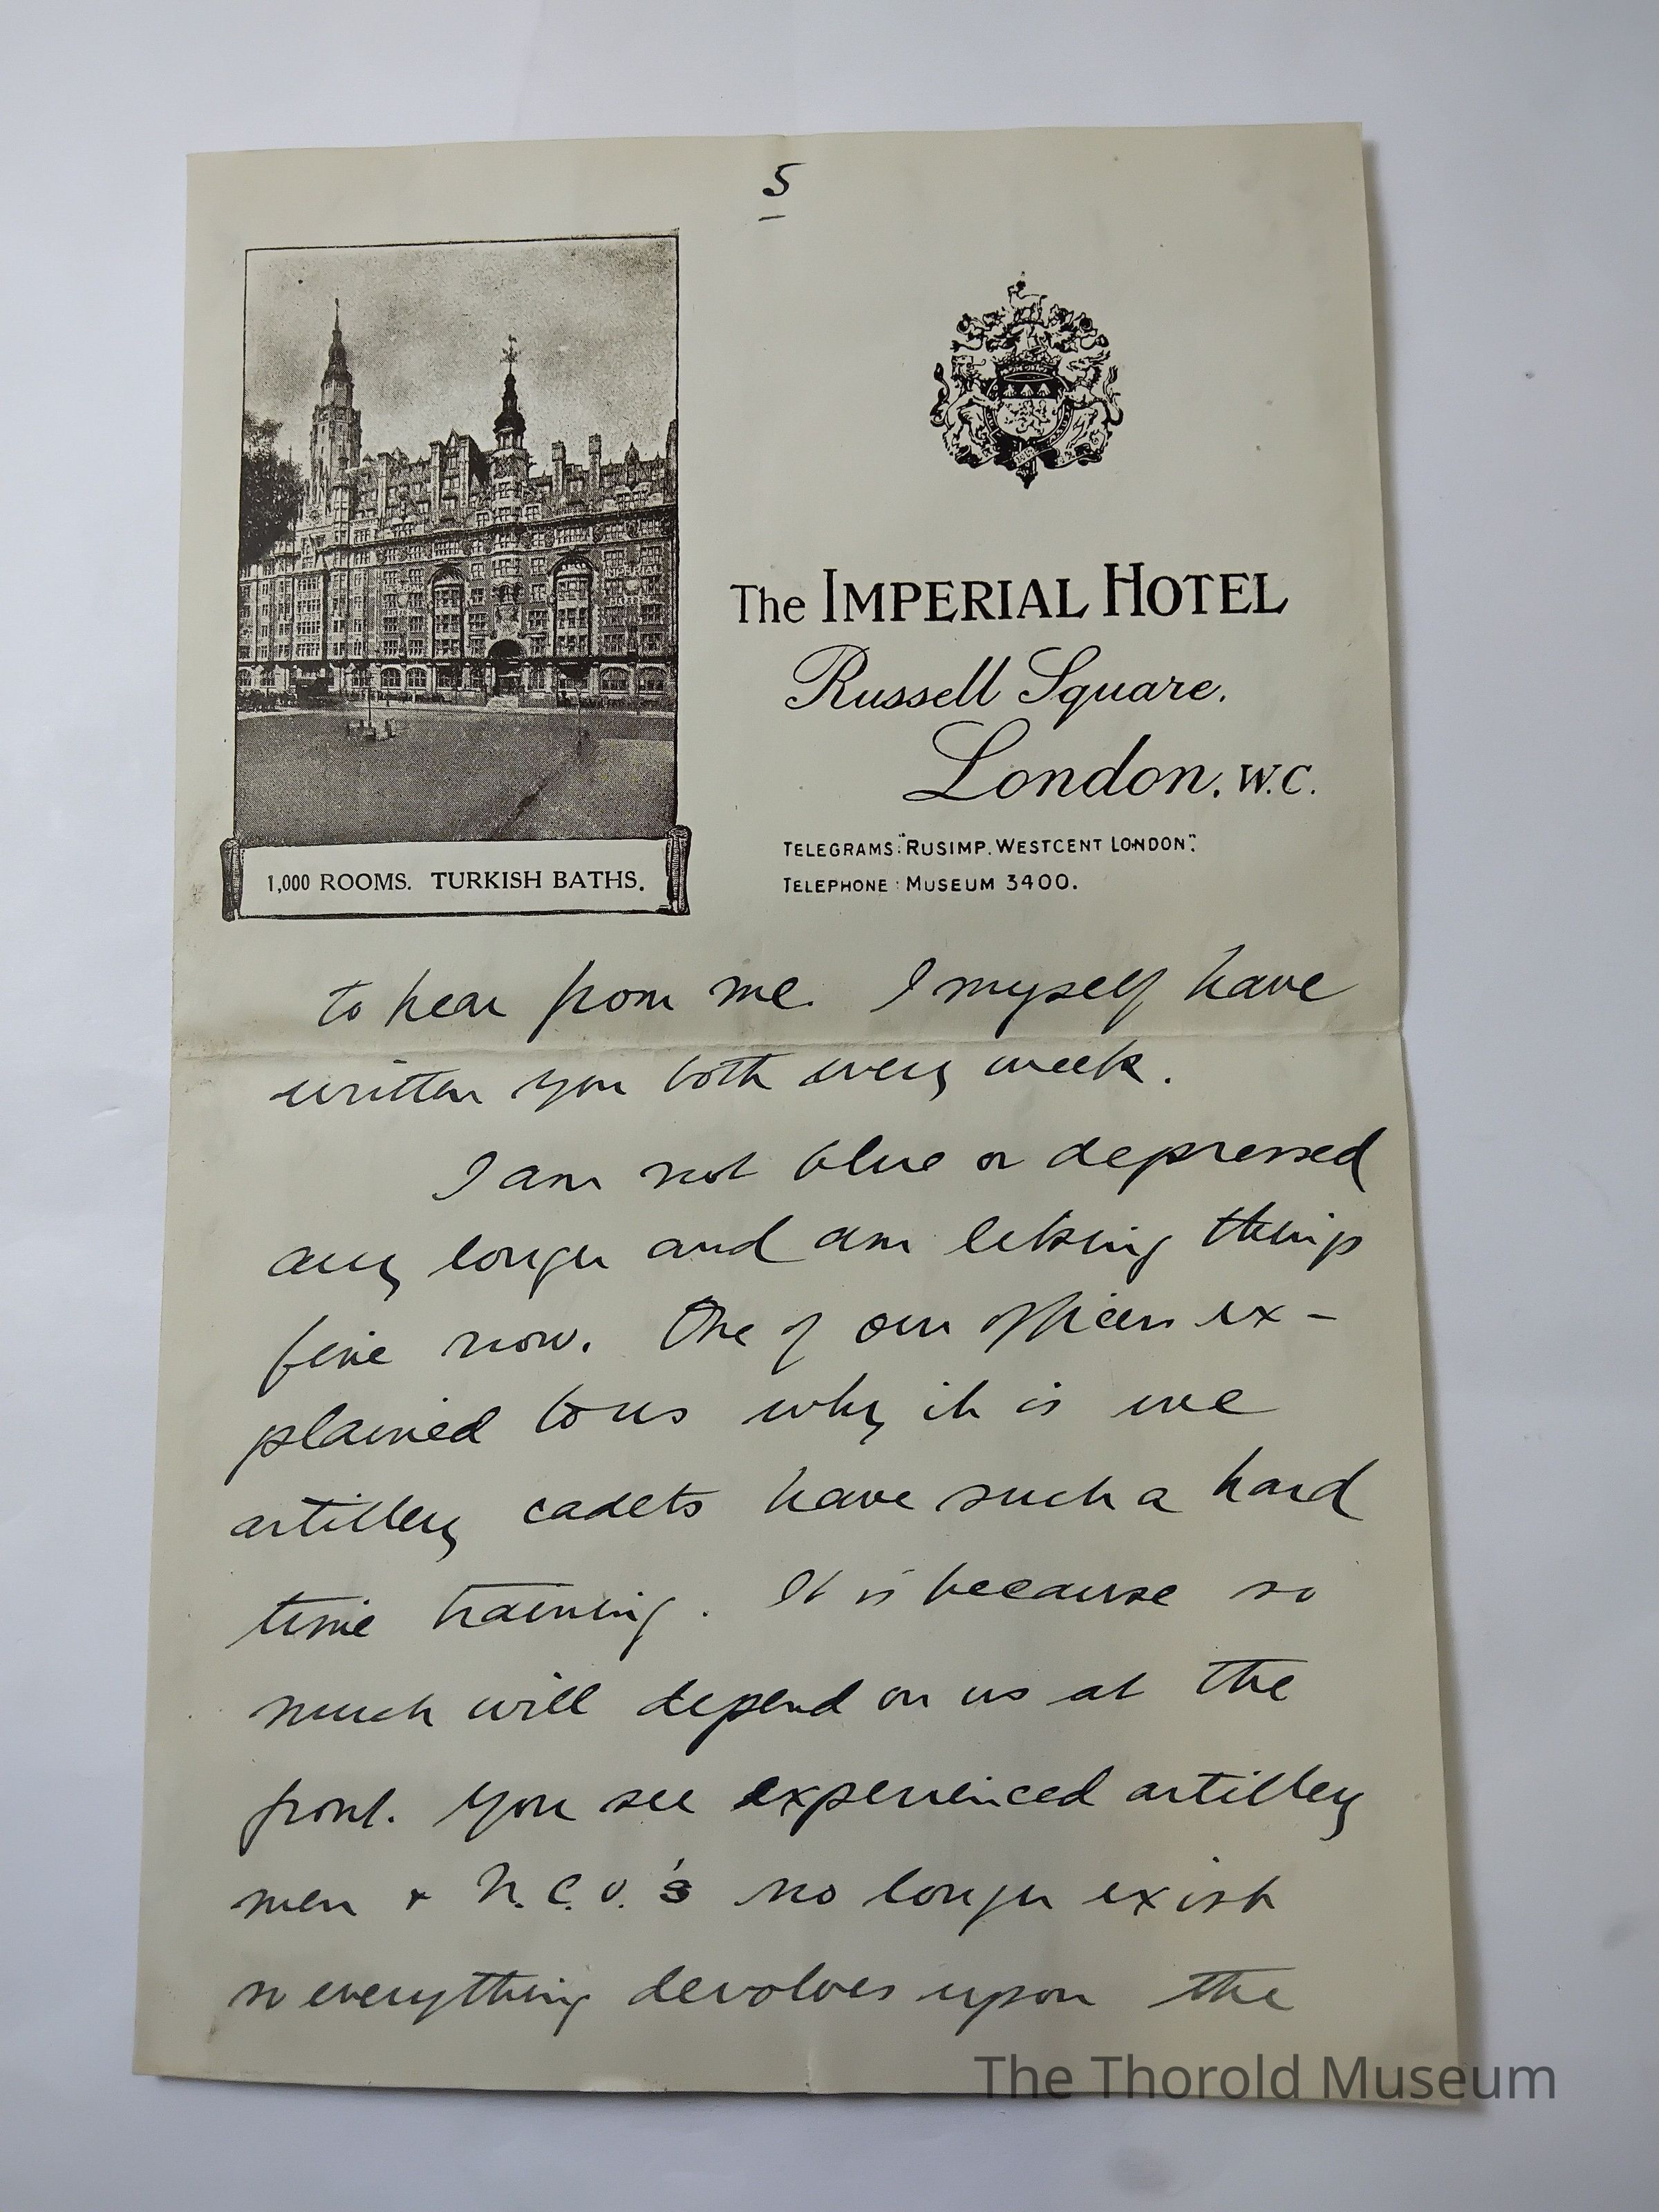 5
The IMPERIAL HOTEL
Russell Square,
London, W.C.
TELEGRAMS: "RUSIMP. WESTCENT LONDON".
TELEPHONE: MUSEUM 3400.
1,000 ROOMS. TURKISH BATHS.
to hear from me. I myself have
written you both every week.
I am not blue or depressed
any longer and am liking things
fine now. One of our officers ex-
plained to us why it is we
artillery cadets have such a hard
time training. It is because so
much will depend on us at the
front. You see experienced artillery
men + N.C.O.'s no longer exist
so everything devolves upon the
The Thorold Museum